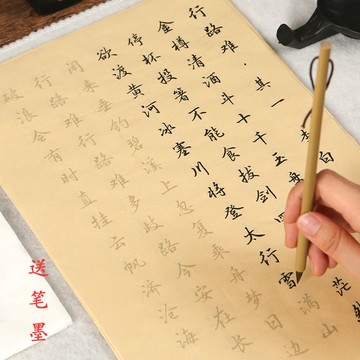 行路难·其一 李白
金樽清酒斗十千玉
停杯投箸不能食拔剑四 茫
欲渡黄河冰塞川将登太行雪满山
闲来垂钓碧溪上忽复乘舟梦日边
行路难行路难多歧路今安在长
破浪会有时直挂云帆济沧海
送笔墨